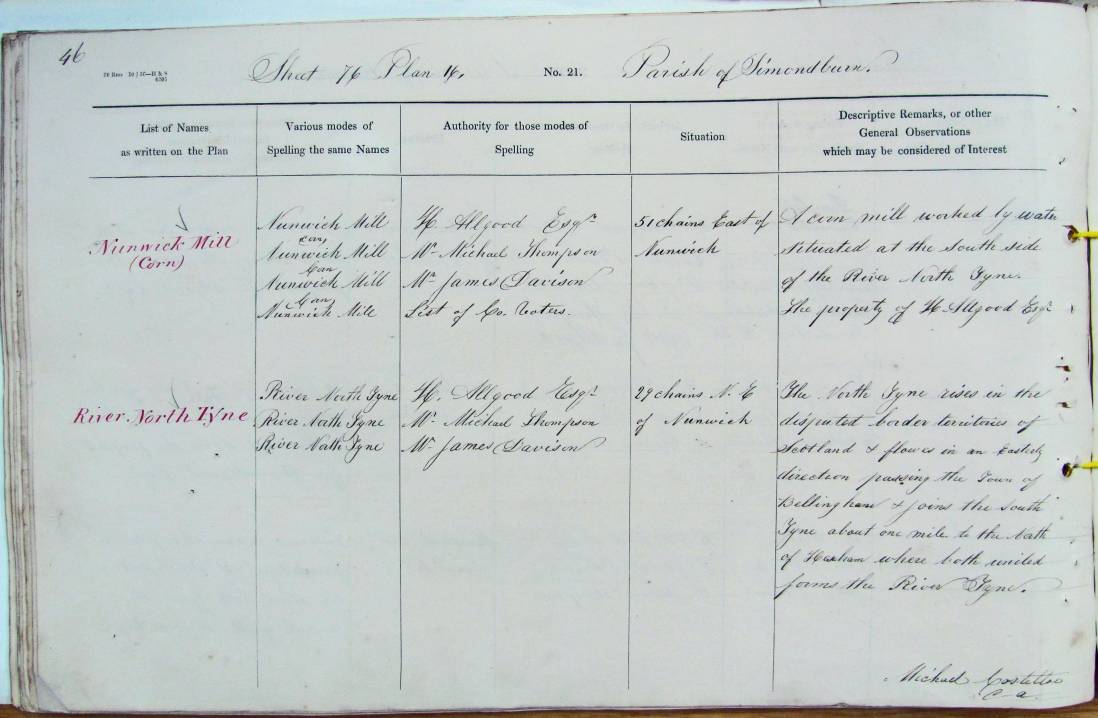 46
Sheet 76 Plan 16. No. 21. Parish of Simondburn.
List of Names
as written on the Plan
Various modes of
Spelling the same Names
Authority for those modes of
Spelling
Situation
Descriptive Remarks, or other
General Observations
which may be considered of Interest
Nunwick Mill
(Corn)
Nunwich Mill
Corn
Nunwich Mill
Corn
Nunwich Mill
Corn
Nunwich Mill
H. Allgood Esqr.
Mr. Michael Thompson
Mr. James Davison
List of Co. Voters.
51 chains East of
Nunwich
A corn mill worked by water
situated at the south side
of the River North Tyne.
The property of H. Allgood Esqr.
River North Tyne
River North Tyne
River North Tyne
River North Tyne
H. Allgood Esqr.
Mr. Michael Thompson
Mr. James Davison
29 chains N. E
of Nunwich
The North Tyne rises in the
disputed border territories of
Scotland & flows in an Easterly
direction passing the Town of
Bellingham & joins the South
Tyne about one mile to the North
of Hexham where both united
forms the River Tyne.
Michael Costello
C. a.